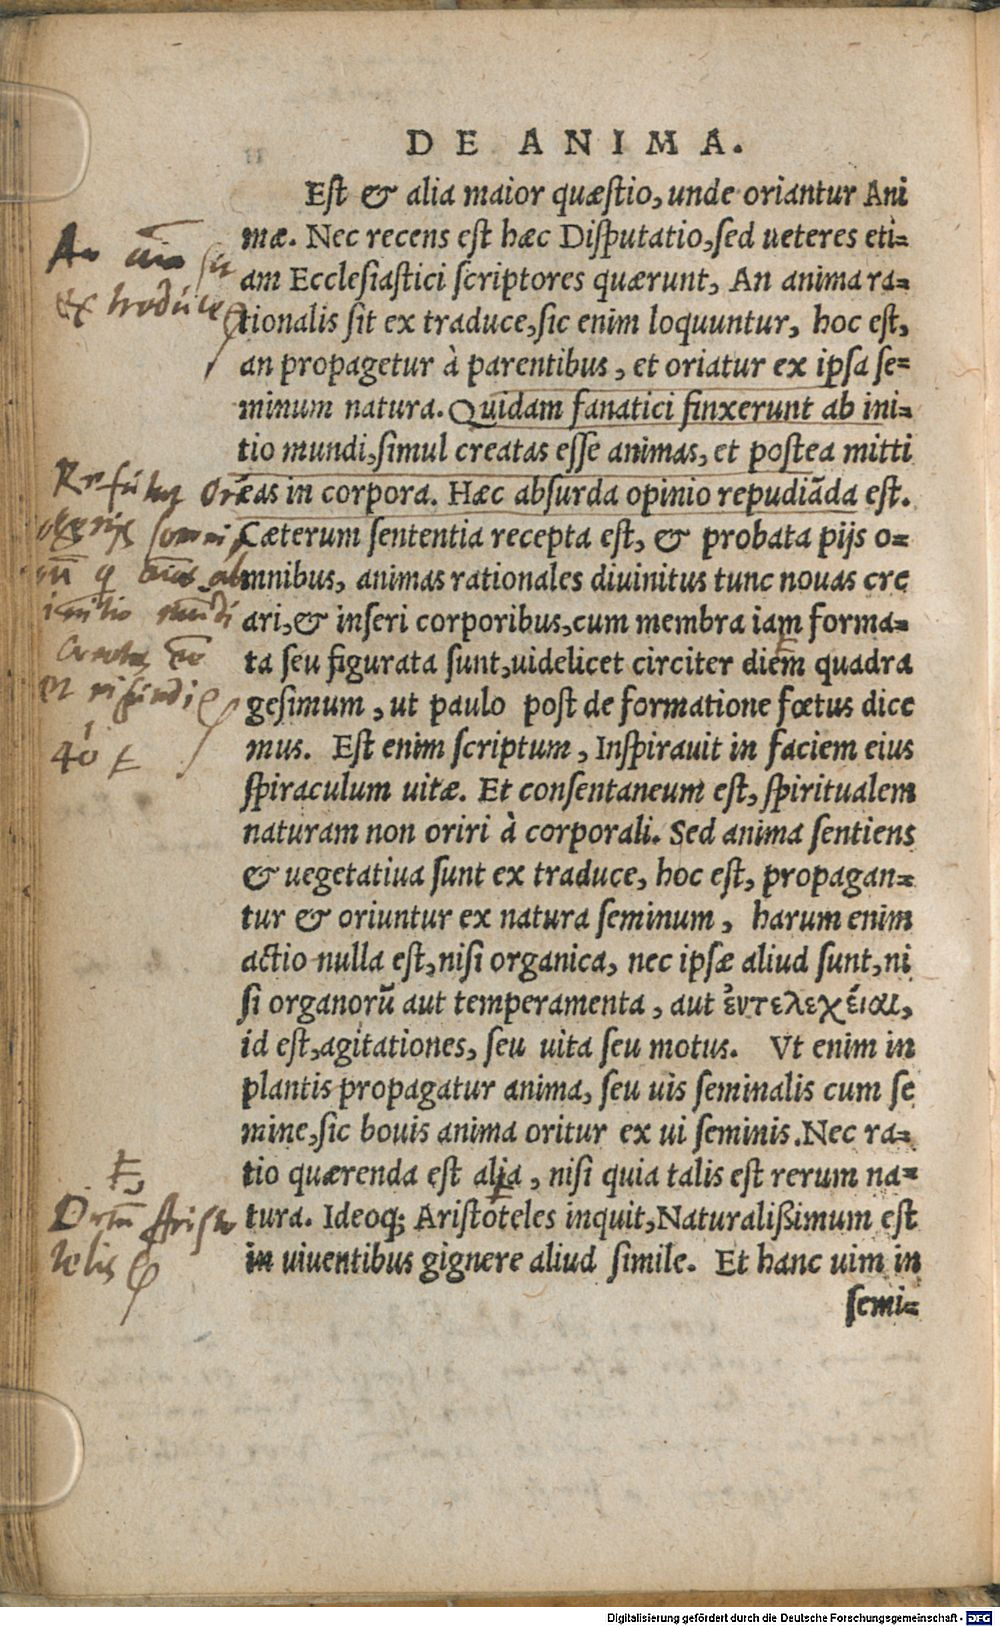 DE ANIMA.
Est & alia maior quæstio, unde oriantur Ani
mæ. Nec recens est hæc Disputatio, sed ueteres eti=
am Ecclesiastici scriptores quærunt, An anima ra=
tionalis sit ex traduce, sic enim loquuntur, hoc est,
an propagetur à parentibus, et oriatur ex ipsa se=
minum natura. Quidam fanatici finxerunt ab ini=
tio mundi, simul creatas esse animas, et postea mitti
eas in corpora. Hæc absurda opinio repudiāda est.
Cæterum sententia recepta est, & probata pijs o=
mnibus, animas rationales diuinitus tunc nouas cre
ari, & inseri corporibus, cum membra iam forma=
ta seu figurata sunt, uidelicet circiter diem quadra
gesimum, ut paulo post de formatione fœtus dice
mus. Est enim scriptum, Inspirauit in faciem eius
spiraculum uitæ. Et consentaneum est, spiritualem
naturam non oriri à corporali. Sed anima sentiens
& uegetatiua sunt ex traduce, hoc est, propagan=
tur & oriuntur ex natura seminum, harum enim
actio nulla est, nisi organica, nec ipsæ aliud sunt, ni
si organorũ aut temperamenta, aut ἐντελεχέιαι,
id est, agitationes, seu uita seu motus. Vt enim in
plantis propagatur anima, seu uis seminalis cum se
mine, sic bouis anima oritur ex ui seminis. Nec ra=
tio quærenda est alia, nisi quia talis est rerum na=
tura. Ideoq; Aristoteles inquit, Naturalißimum est
in uiuentibus gignere aliud simile. Et hanc uim in
semi=
An
sit
ex traduce
ab
initio mundi
40
Aristo
telis
Digitalisierung gefördert durch die Deutsche Forschungsgemeinschaft - DFG